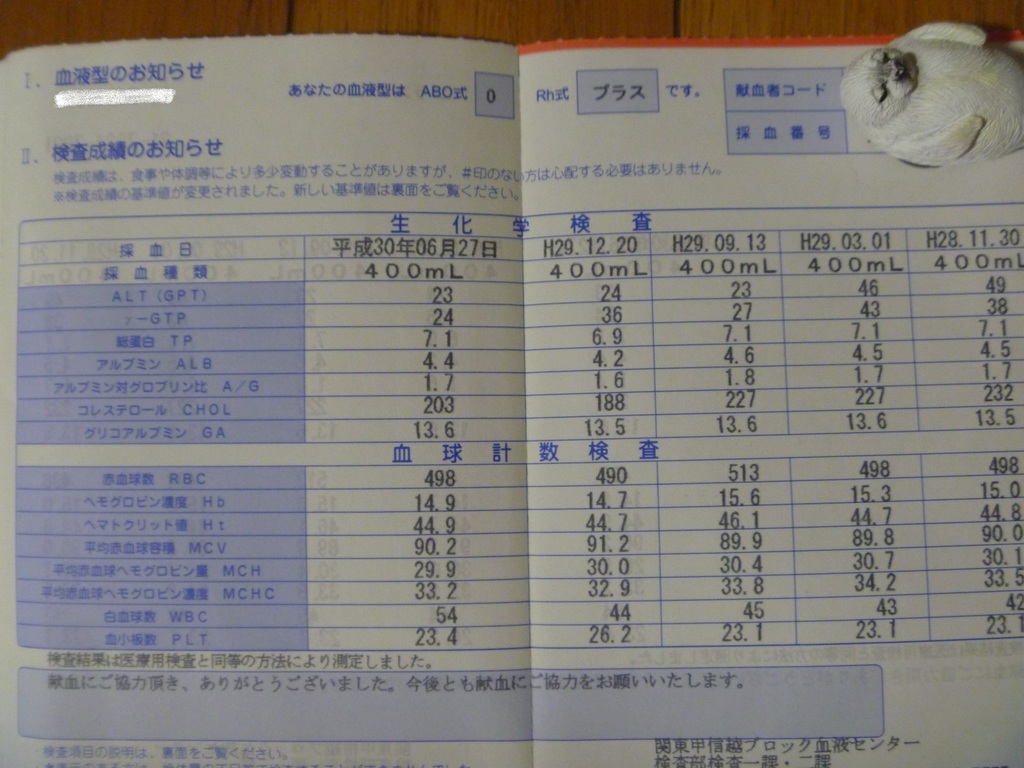 Ⅰ. 血液型のお知らせ
あなたの血液型は ABO式 O Rh式 プラス です。 献血者コード
採血番号
Ⅱ. 検査成績のお知らせ
検査成績は、食事や体調等により多少変動することがありますが、#印のない方は心配する必要はありません。
※検査成績の基準値が変更されました。新しい基準値は裏面をご覧ください。
生化学検査
採血日 平成30年06月27日 H29.12.20 H29.09.13 H29.03.01 H28.11.30
採血種類 400mL 400mL 400mL 400mL 400mL
ALT(GPT) 23 24 23 46 49
γ-GTP 24 36 27 43 38
総蛋白 TP 7.1 6.9 7.1 7.1 7.1
アルブミン ALB 4.4 4.2 4.6 4.5 4.5
アルブミン対グロブリン比 A/G 1.7 1.6 1.8 1.7 1.7
コレステロール CHOL 203 188 227 227 232
グリコアルブミン GA 13.6 13.5 13.6 13.6 13.5
血球計数検査
赤血球数 RBC 498 490 513 498 498
ヘモグロビン濃度 Hb 14.9 14.7 15.6 15.3 15.0
ヘマトクリット値 Ht 44.9 44.7 46.1 44.7 44.8
平均赤血球容積 MCV 90.2 91.2 89.9 89.8 90.0
平均赤血球ヘモグロビン量 MCH 29.9 30.0 30.4 30.7 30.1
平均赤血球ヘモグロビン濃度 MCHC 33.2 32.9 33.8 34.2 33.5
白血球数 WBC 54 44 45 43 42
血小板数 PLT 23.4 26.2 23.1 23.1 23.1
検査結果は医療用検査と同等の方法により測定しました。
献血にご協力頂き、ありがとうございました。今後とも献血にご協力をお願いいたします。
検査項目の説明は、裏面をご覧ください。
関東甲信越ブロック血液センター
検査部検査一課・二課